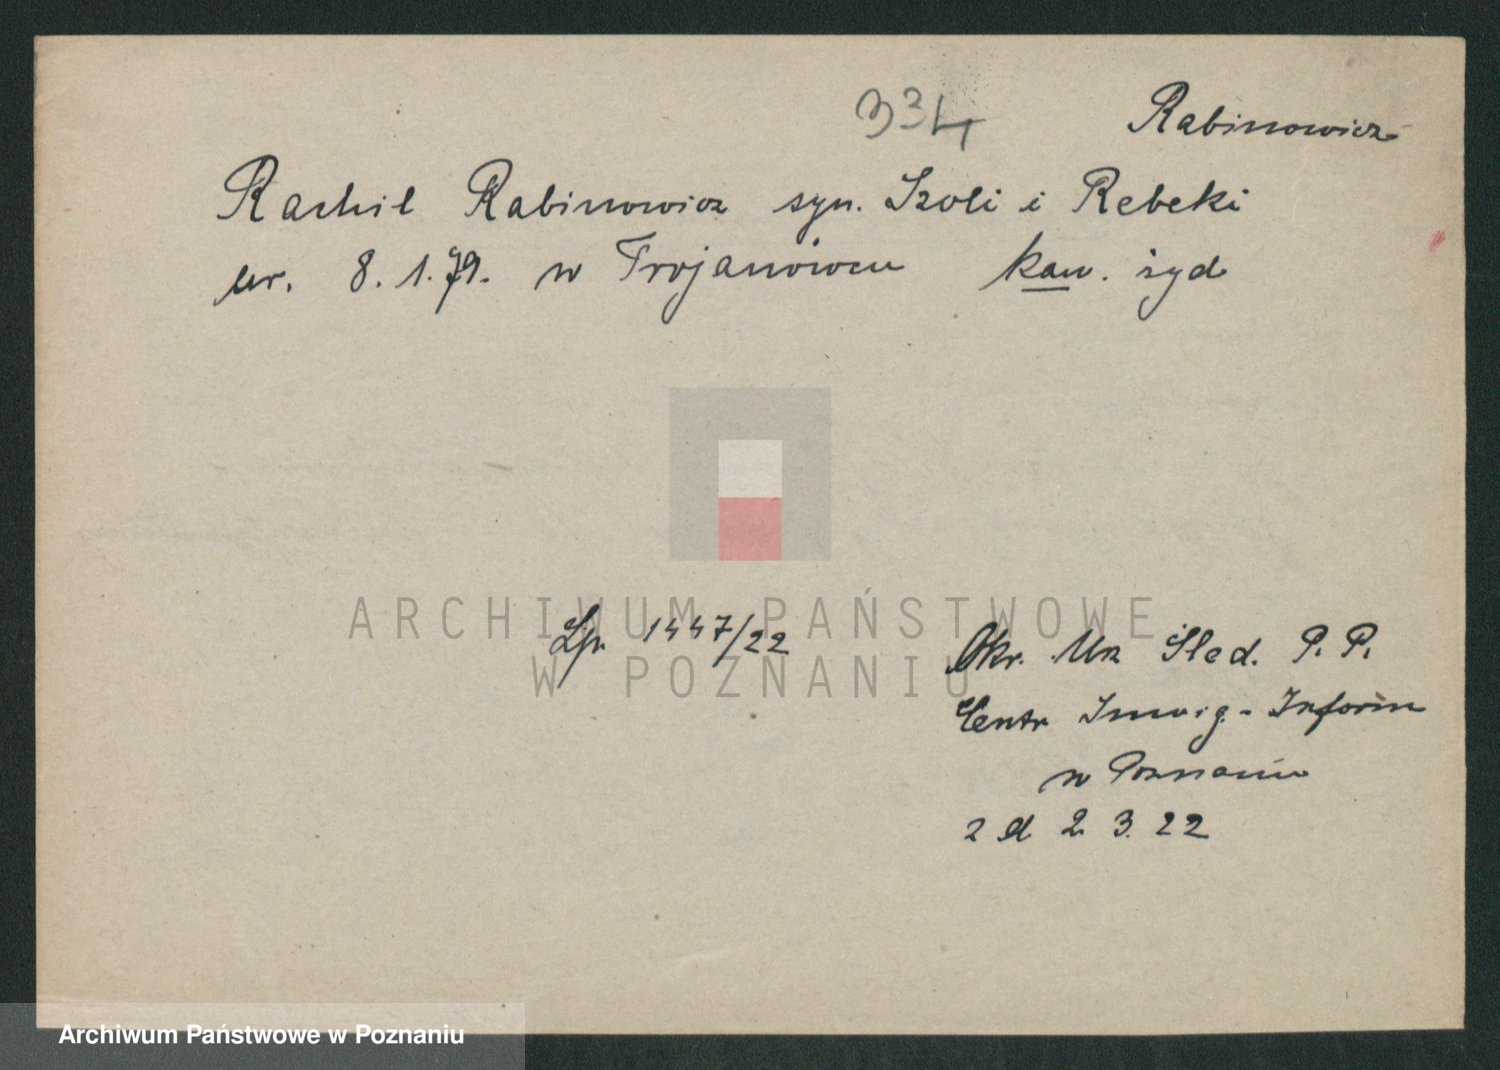 334
Rabinowicz
Rachil Rabinowicz syn. Szoli i Rebeki
ur. 8.1.79. w Trojanowcu kaw. żyd
ARCHIWUM PAŃSTWOWE
W POZNANIU
Lp. 1447/22
Okr. Urz Śled. P. P.
Centr Inwig-Inform
w Poznaniu
z d 2 3. 22
Archiwum Państwowe w Poznaniu